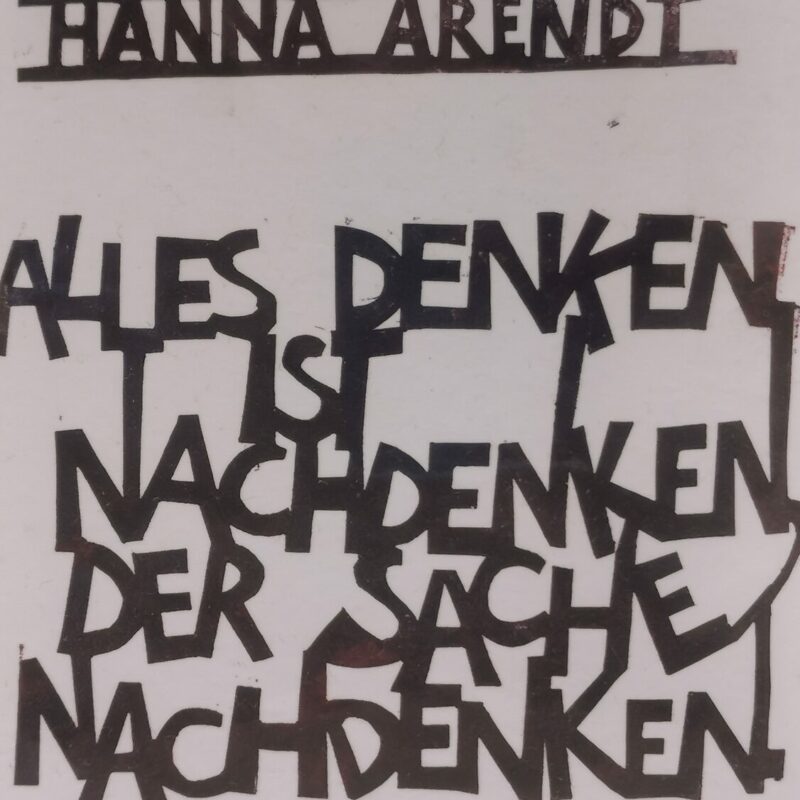 HANNA ARENDT
ALLES DENKEN
IST
NACHDENKEN,
DER SACHE
NACHDENKEN.